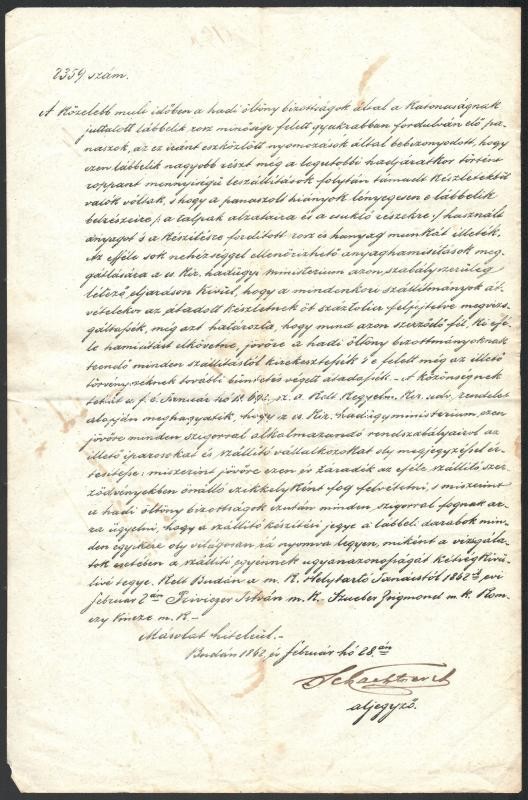 2359 szám.
A közelebb mult időben a hadi öltöny bizottságok által a katonaságnak
juttatott lábbelik rosz minősége felett gyakrabban fordulván elő pa-
naszok, az ez iránt eszközlött nyomozások által bebizonyodott, hogy
ezen lábbelik nagyobb részt még a legutóbbi hadjáratkor történt
roppant mennyiségű leszállítások folytán támadt készletekből
valók vóltak, s hogy a panaszolt hiányok lényegesen e lábbelik
belrészeire /: a talpak alzataira és a csukló részekre :/ használt
anyagot s a készítésre fordított rosz és hanyag munkát illeték.
Az efféle sok nehézséggel ellenőrizhető anyaghamisítások meg-
gátlására a cs. Kir. hadügyi ministerium azon szabályszerűleg
létező eljáráson kívül, hogy a mindenkori szállítmányok át-
vételekor az átadott készletnek öt száztolia felfejtetve megvizs-
gáltassék, még azt határozta, hogy mind azon szerződő fél, ki efé-
le hamisítást elkövetne, jövőre a hadi öltöny bizottmányoknak
teendő minden szállítástól kirekesztessék s e felett még az illető
törvényszéknek további büntetés végett átadassék. – A közönségnek
tehát a f. é. Január hó 16. 692. sz. a. kelt Kegyelm. Kir. udv. rendelet
alapján meghagyatik, hogy a cs. Kir. hadügyministerium, ezen
jövőre minden szigorral alkalmazandó rendszabályairól az
illető iparosokat és szállító vállalkozókat oly megjegyzéssel ér-
tesítse, miszerint jövőre ezen és záradék az eféle szállító szer-
ződvényekben önálló czikkelyként fog felvétetni, s miszerint
a hadi öltöny bizottságok ezután minden szigorral fognak ar-
ra ügyelni, hogy a szállító készítési jegye a lábbeli darabok min-
den egyikére oly világosan rá nyomva legyen, miként a vizsgála-
tok esetében a szállító egyénnek ugyanazonosságát kétségkivü-
livé tegye. Kelt Budán a m. K. Helytartó Tanácstól 1862ik évi
február 2án Priviczer István m. k. Zsigmond m. k. Kom-
czy Vincze m. k. –
Másolat hiteléül. –
Budán 1862. évi február hó 28.án
aljegyző.